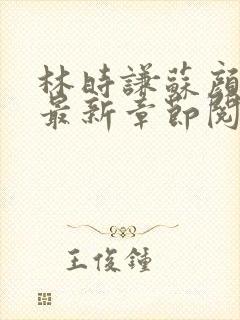 林時謙蘇顏
最新章節閱
王俊鍾